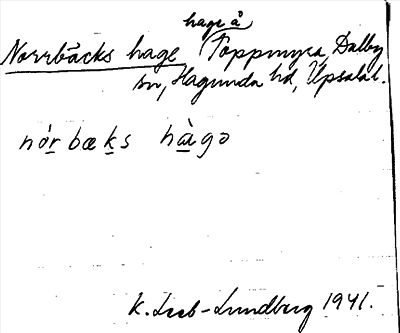 hage å
Norrbäcks hage Poppmyra, Dalby
sn, Hagunda hd, Upsala l.
nórbæks hàgǝ
K. Leeb-Lundberg 1941.